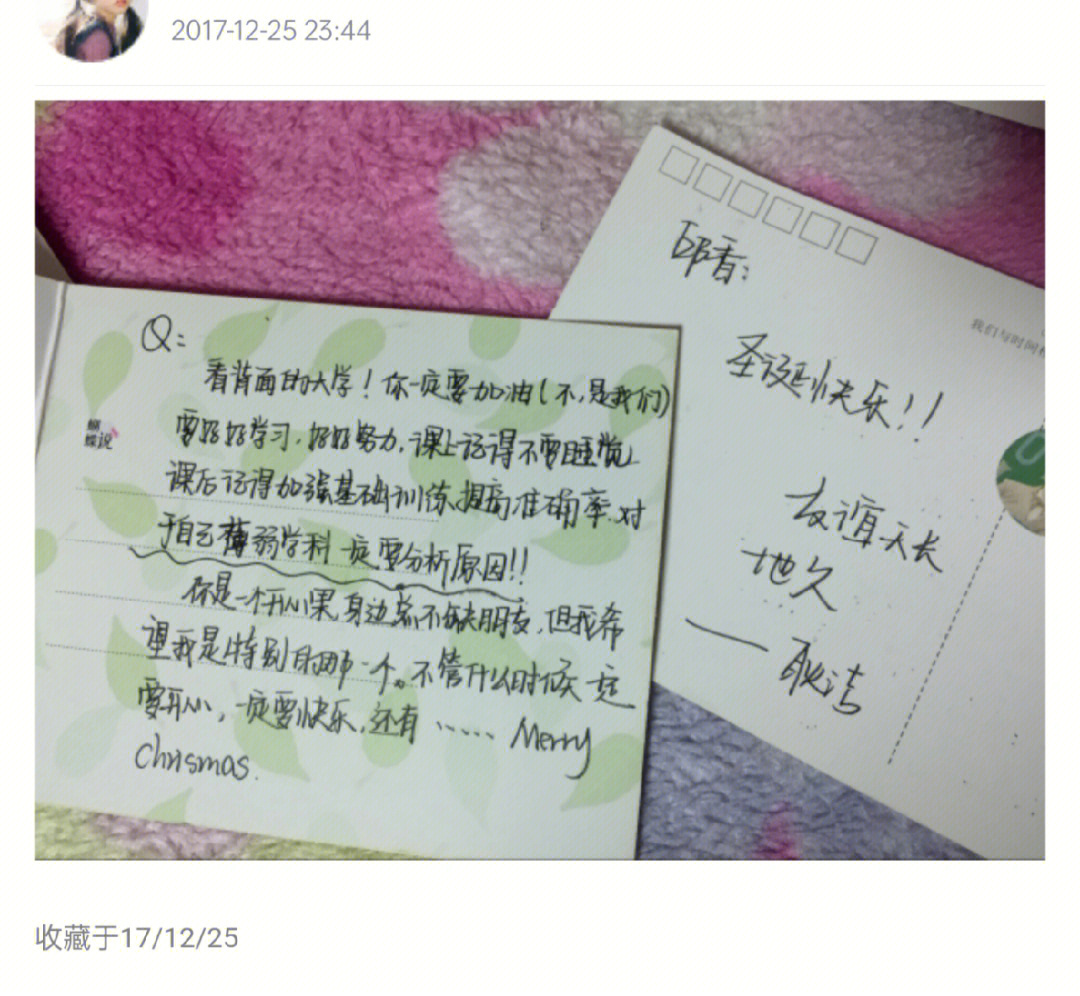 2017-12-25 23:44
Q:
看背面的大学！你一定要加油(不,是我们)
要好好学习,好好努力,课上记得不要睡觉
课后记得加强基础训练,提高准确率.对
于自己薄弱学科一定要分析原因!!
你是一个开心果,身边总不缺朋友,但我希
望我是特别的那一个。不管什么时候一定
要开心,一定要快乐,还有…… Merry
Chrismas.
蝴
蝶说
香:
我们与时间
圣诞快乐!!
友谊天长
地久
——耿洁
收藏于17/12/25